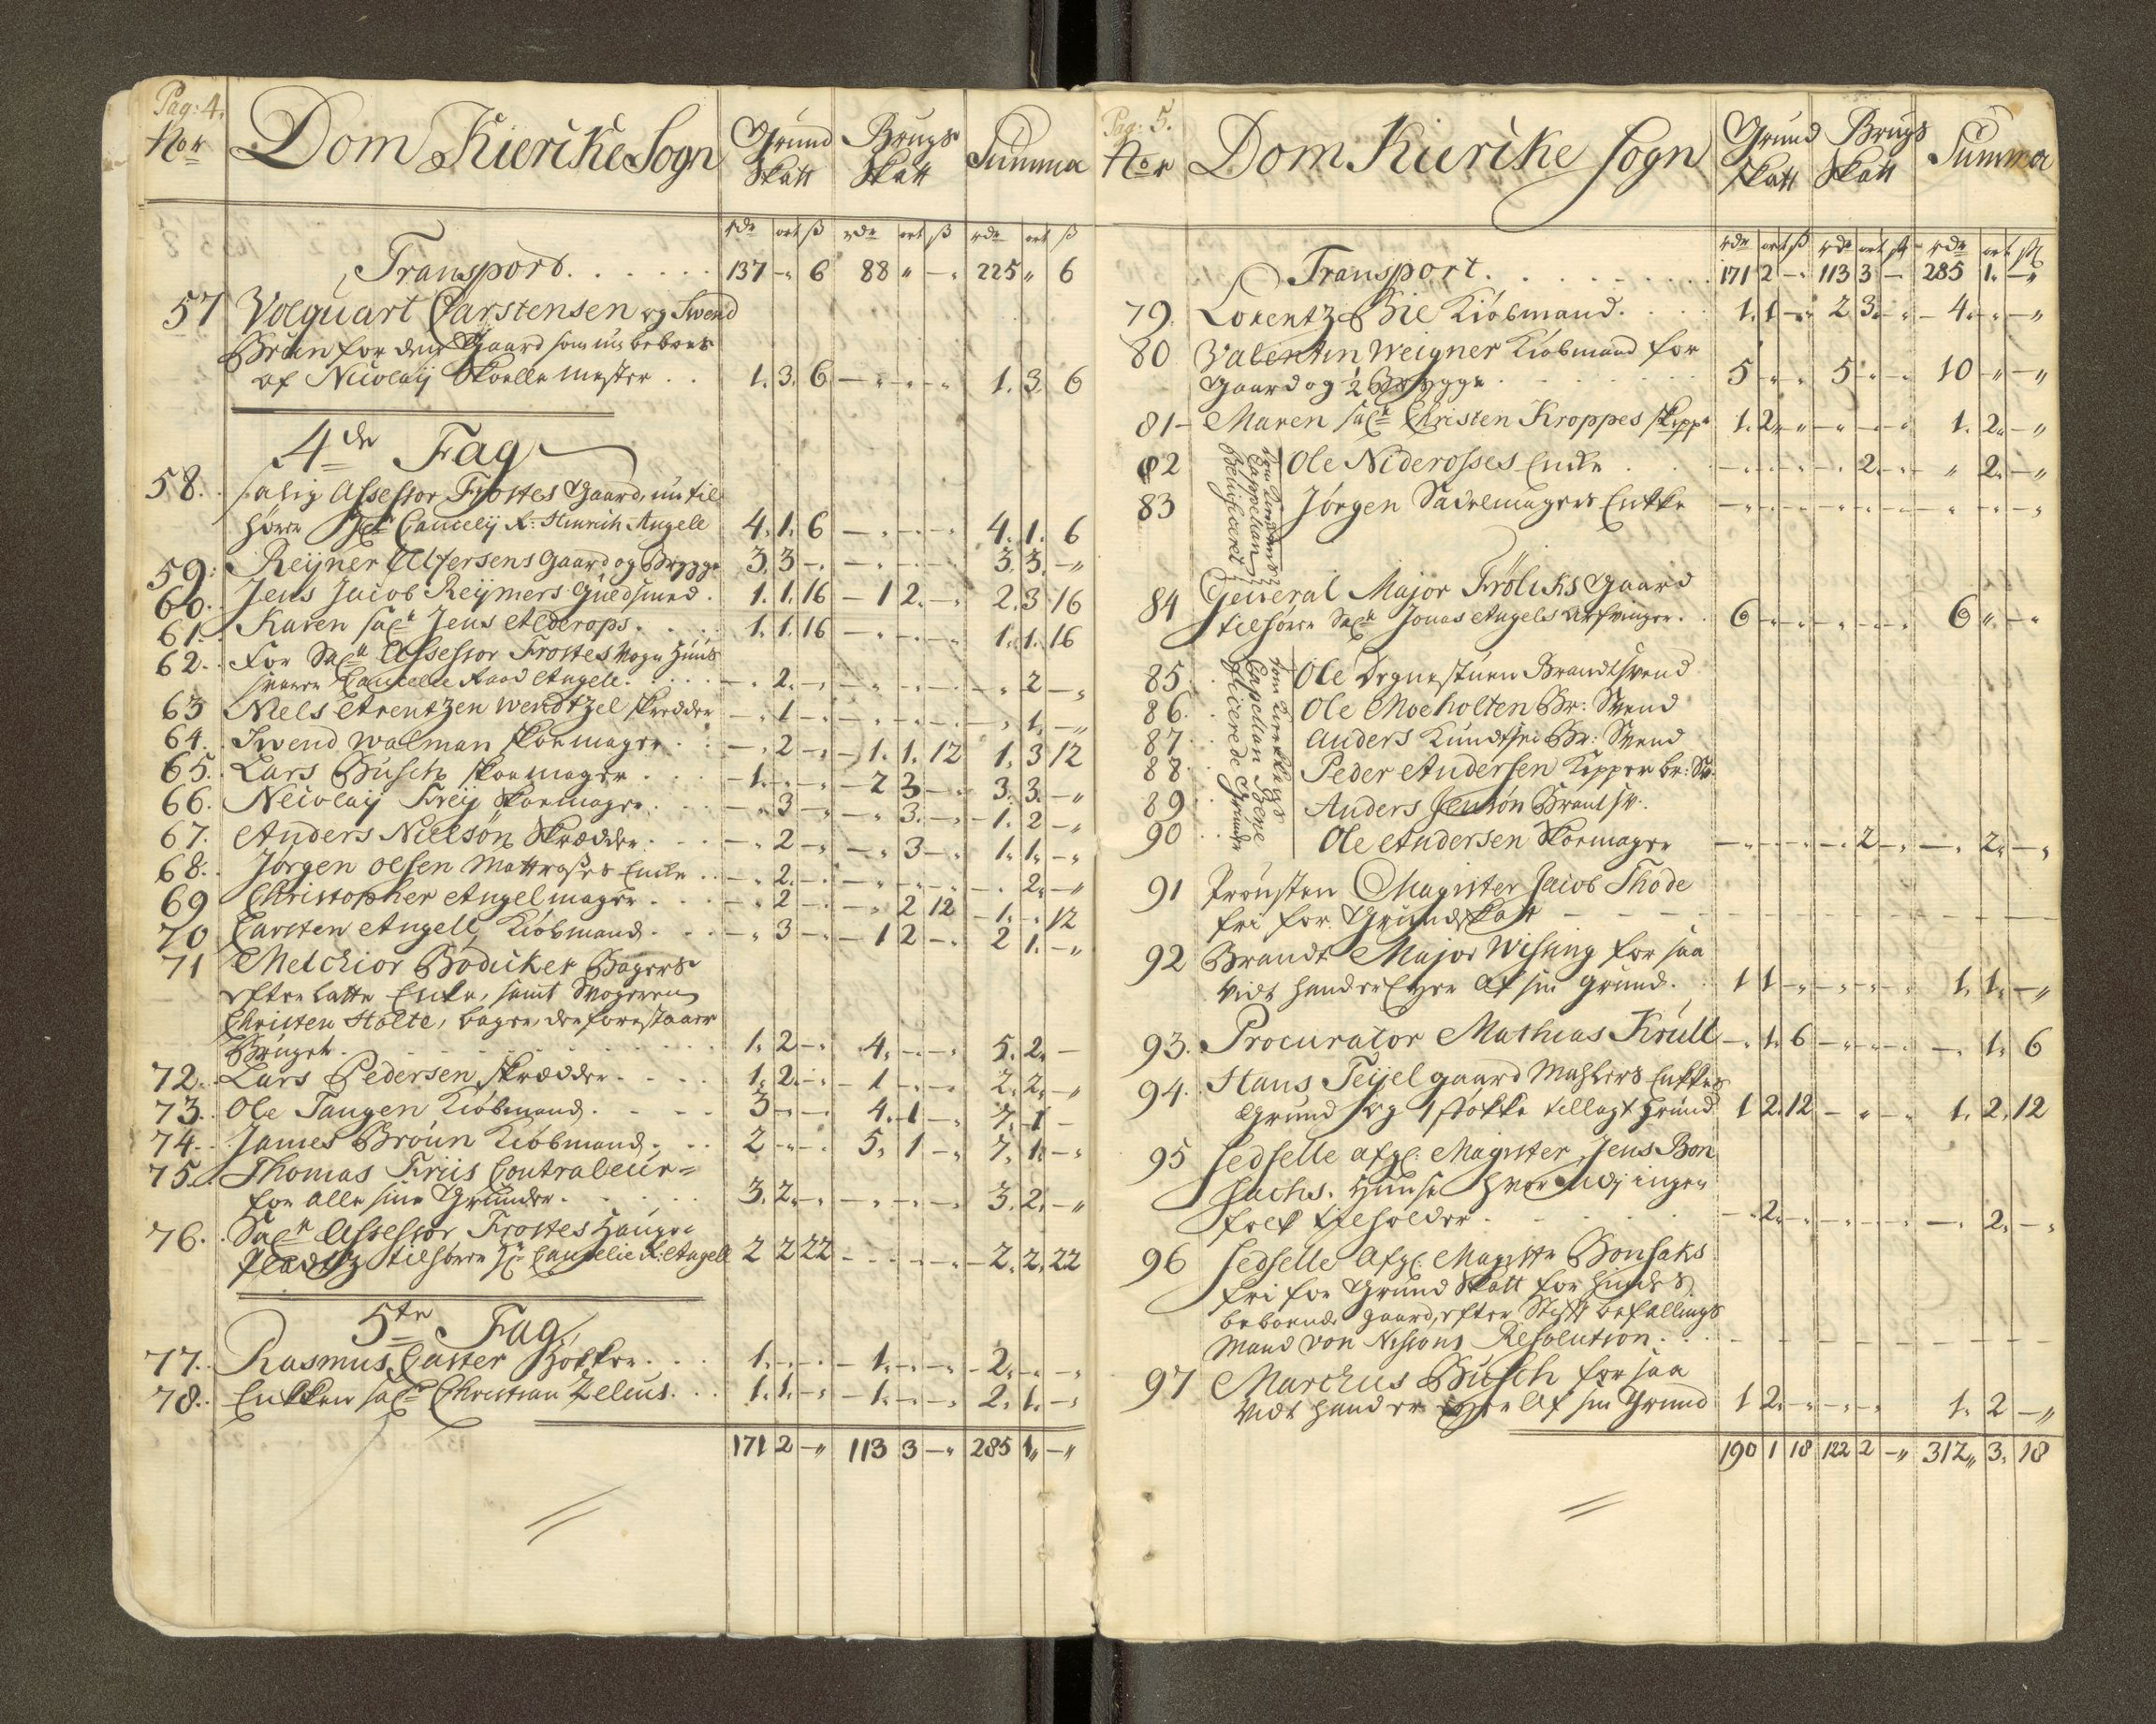 Pag: 4.
No r Dom Kierike Sogn Grund Skatt Brugs Skatt Summa
rdr ort ß rdr ort ß rdr ort ß
Transport. 137 - 6 88 " - 225 " 6
57 Volquart Carstensen og Svend
Brun for den Gaard som nu beboes
af Nicolaij Skoellemester . . 1. 3. 6 - - - 1. 3. 6
4de Fag
58. salig Assessor Frostes Gaard, nu til
hører Hr Cancelij R: Hinrich Angell 4. 1. 6 - - - 4. 1. 6
59: Reijner Elfersens Gaard og Brygge 3. 3 - - - - 3. 3. -
60. Jens Jacob Reijmers Guldsmed. 1. 1. 16 - 1 2. - 2. 3 16
61. Karen sal Jens Alderops. 1. 1. 16 - - - 1. 1. 16
62. For Sal Assessor Frostes Vogn Huus
svarer Cancelie Raad Angell. - 2. - - - - - 2 -
63 Niels Arentzen Wendtzel skredder - 1 - - - - - 1. -
64. Swend Walman skoemager - 2 - 1. 1. 12 1. 3 12
65. Lars Busch skoemager 1. - - 2 3 - 3. 3. -
66. Nicolaij Freij skoemager. - 3 - - 3. - 1. 2 -
67. Anders Nielsøn Skrædder. - 2 - - 3 - 1. 1. -
68. Jørgen Olsen Mattroses Encke - 2. - - - - - 2. -
69 Christopher Angelmager - 2 - - 2 12 1. - 12
70 Carsten Angell Kiøbmand - 3 - 1 2 - 2 1. -
71 Melchior Bödicker Bagers
efterlatte Encke, samt Svogeren
Christen Holte, bager, der forestaaer
Bruget. 1. 2 - 4. - - 5. 2. -
72. Lars Pedersen skrædder 1. 2. - 1 - - 2. 2. -
73. Ole Tangen Kiøbmand. 3 - - 4. 1 - 7. 1 -
74. James Broun Kiøbmand. 2 - - 5. 1 - 7. 1. -
75. Thomas Friis Contraleur=
for alle sine Grunder. 3. 2. - - - - 3. 2. -
76. Sal Assessor Frostes Hauge
Pladtz tilhører Hr Cancelie R: Angell 2 2 22 - - - 2. 2. 22
5te Fag.
77. Rasmus Caster Høkker. 1. - - 1. - - 2. - -
78. Enkken sal Christian Zeleus. 1. 1. - 1. - - 2. 1. -
171 2 - 113 3 - 285 1 -
Pag: 5.
No r Dom Kierike Sogn Grund Skatt Brugs Skatt Summa
rdr ort ß rdr ort ß rdr ort ß
Transport. 171 2 - 113 3 - 285 1. -
79. Lorentz Bie Kiöbmand. 1. 1 - 2 3. - 4. - -
80 Valentin Weigner Kiøbmand for
Gaard og ½ Brygge 5 - - 5 - - 10 - -
81 Maren sal Christen Kroppes skipp 1. 2 - - - - 1. 2. -
82 Ole Niderosses Encke - - - - 2. - " 2. -
83 Jørgen Sadelmagers Enkke - - - - - - - - -
Dom Kirckens Cappellan Beneficeret
84 General Major Frölichs Gaard
tilhører Sal Jonas Angels Arfvinger. 6 - - - - - 6 - -
85. Ole Degnestuen Brandtsvend
86. Ole Moeholten Br: Svend
87 Anders Kundtsen Br: Svend
88 Peder Andersen Kipper br: Sv.
89 Anders Jensøn Brant sv.
90 Ole Andersen Skoemager - - - - 2 - - 2. -
Dom Kierkkens Capellan Beneficerede Grunder
91 Prousten Magister Jacob Thode
fri for Grundskatt - - - - - - - - -
92 Brandt Major Wissing for saa
vidt hand er Eyer af sin grund. 1 1 - - - - 1. 1. -
93. Procurator Mathias Krull - 1. 6 - - - - 1. 6
94. Hans Teijelgaard Mahlers Enkkes
Grund og 1 støkke tillagt Grund 1 2. 12 - - - 1. 2. 12
95 Sedselle afg: Magister Jens Bon
sachs. Huuse hvor udj ingen
folk tilholder. - 2. - - - - - 2. -
96 Sedselle Afg: Magistr Bonsaks
fri for Grund Skatt for hindes
beboende gaard, efter Stift befallings
Mand von Nissens Resolution. - - - - - - - - -
97 Marchus Busch for saa
vidt hand er Eyer af sin Grund 1 2. - - - - 1. 2 -
190 1 18 122 2 - 312 3. 18